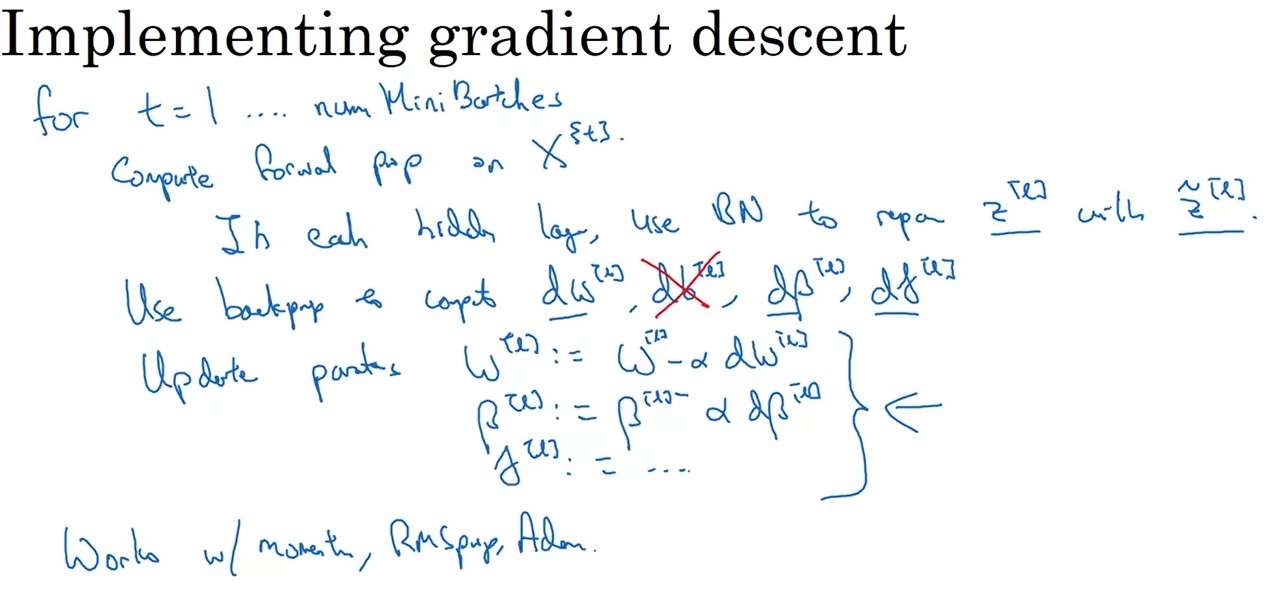 Implementing gradient descent
for t = 1 .... num Mini Batches
Compute forwal prop on X^{t}.
In eah hidden lay, use BN to repar z^[l] with z̃^[l].
Use backprop to compt dW^[l], db^[l], dβ^[l], dγ^[l]
Update parates W^[l] := W^[l] - α dW^[l]
β^[l] := β^[l] - α dβ^[l]
γ^[l] := ....
Works w/ momentm, RMSprop, Adam.